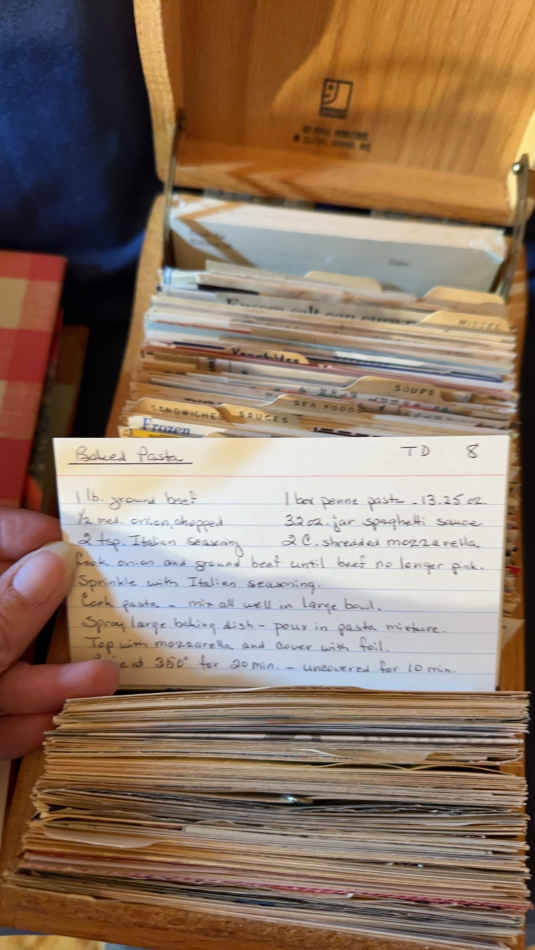 SOUPS
SEA FOODS
SANDWICHES SAUCES
Frozen
Baked Pasta TD 8
1 lb. ground beef 1 box penne pasta - 13.25 oz.
1/2 med. onion, chopped 32 oz. jar spaghetti sauce
2 tsp. Italian seasoning 2 C. shredded mozzarella
Cook onion and ground beef until beef no longer pink.
Sprinkle with Italian seasoning.
Cook pasta - mix all well in large bowl.
Spray large baking dish - pour in pasta mixture.
Top with mozzarella and cover with foil.
at 350° for 20 min. - uncovered for 10 min.